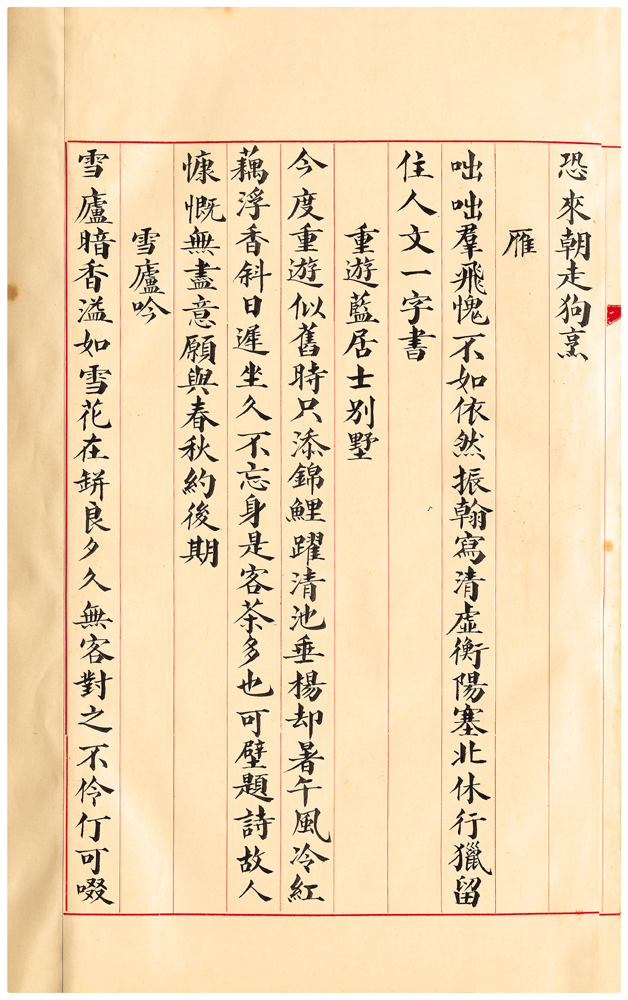 恐來朝走狗烹
雁
咄咄羣飛愧不如依然振翰寫清虛衡陽塞北休行獵留
住人文一字書
重遊藍居士別墅
今度重遊似舊時只添錦鯉躍清池垂楊却暑午風冷紅
藕浮香斜日遲坐久不忘身是客茶多也可壁題詩故人
慷慨無盡意願與春秋約後期
雪廬吟
雪廬暗香溢如雪花在缾良夕久無客對之不伶仃可啜